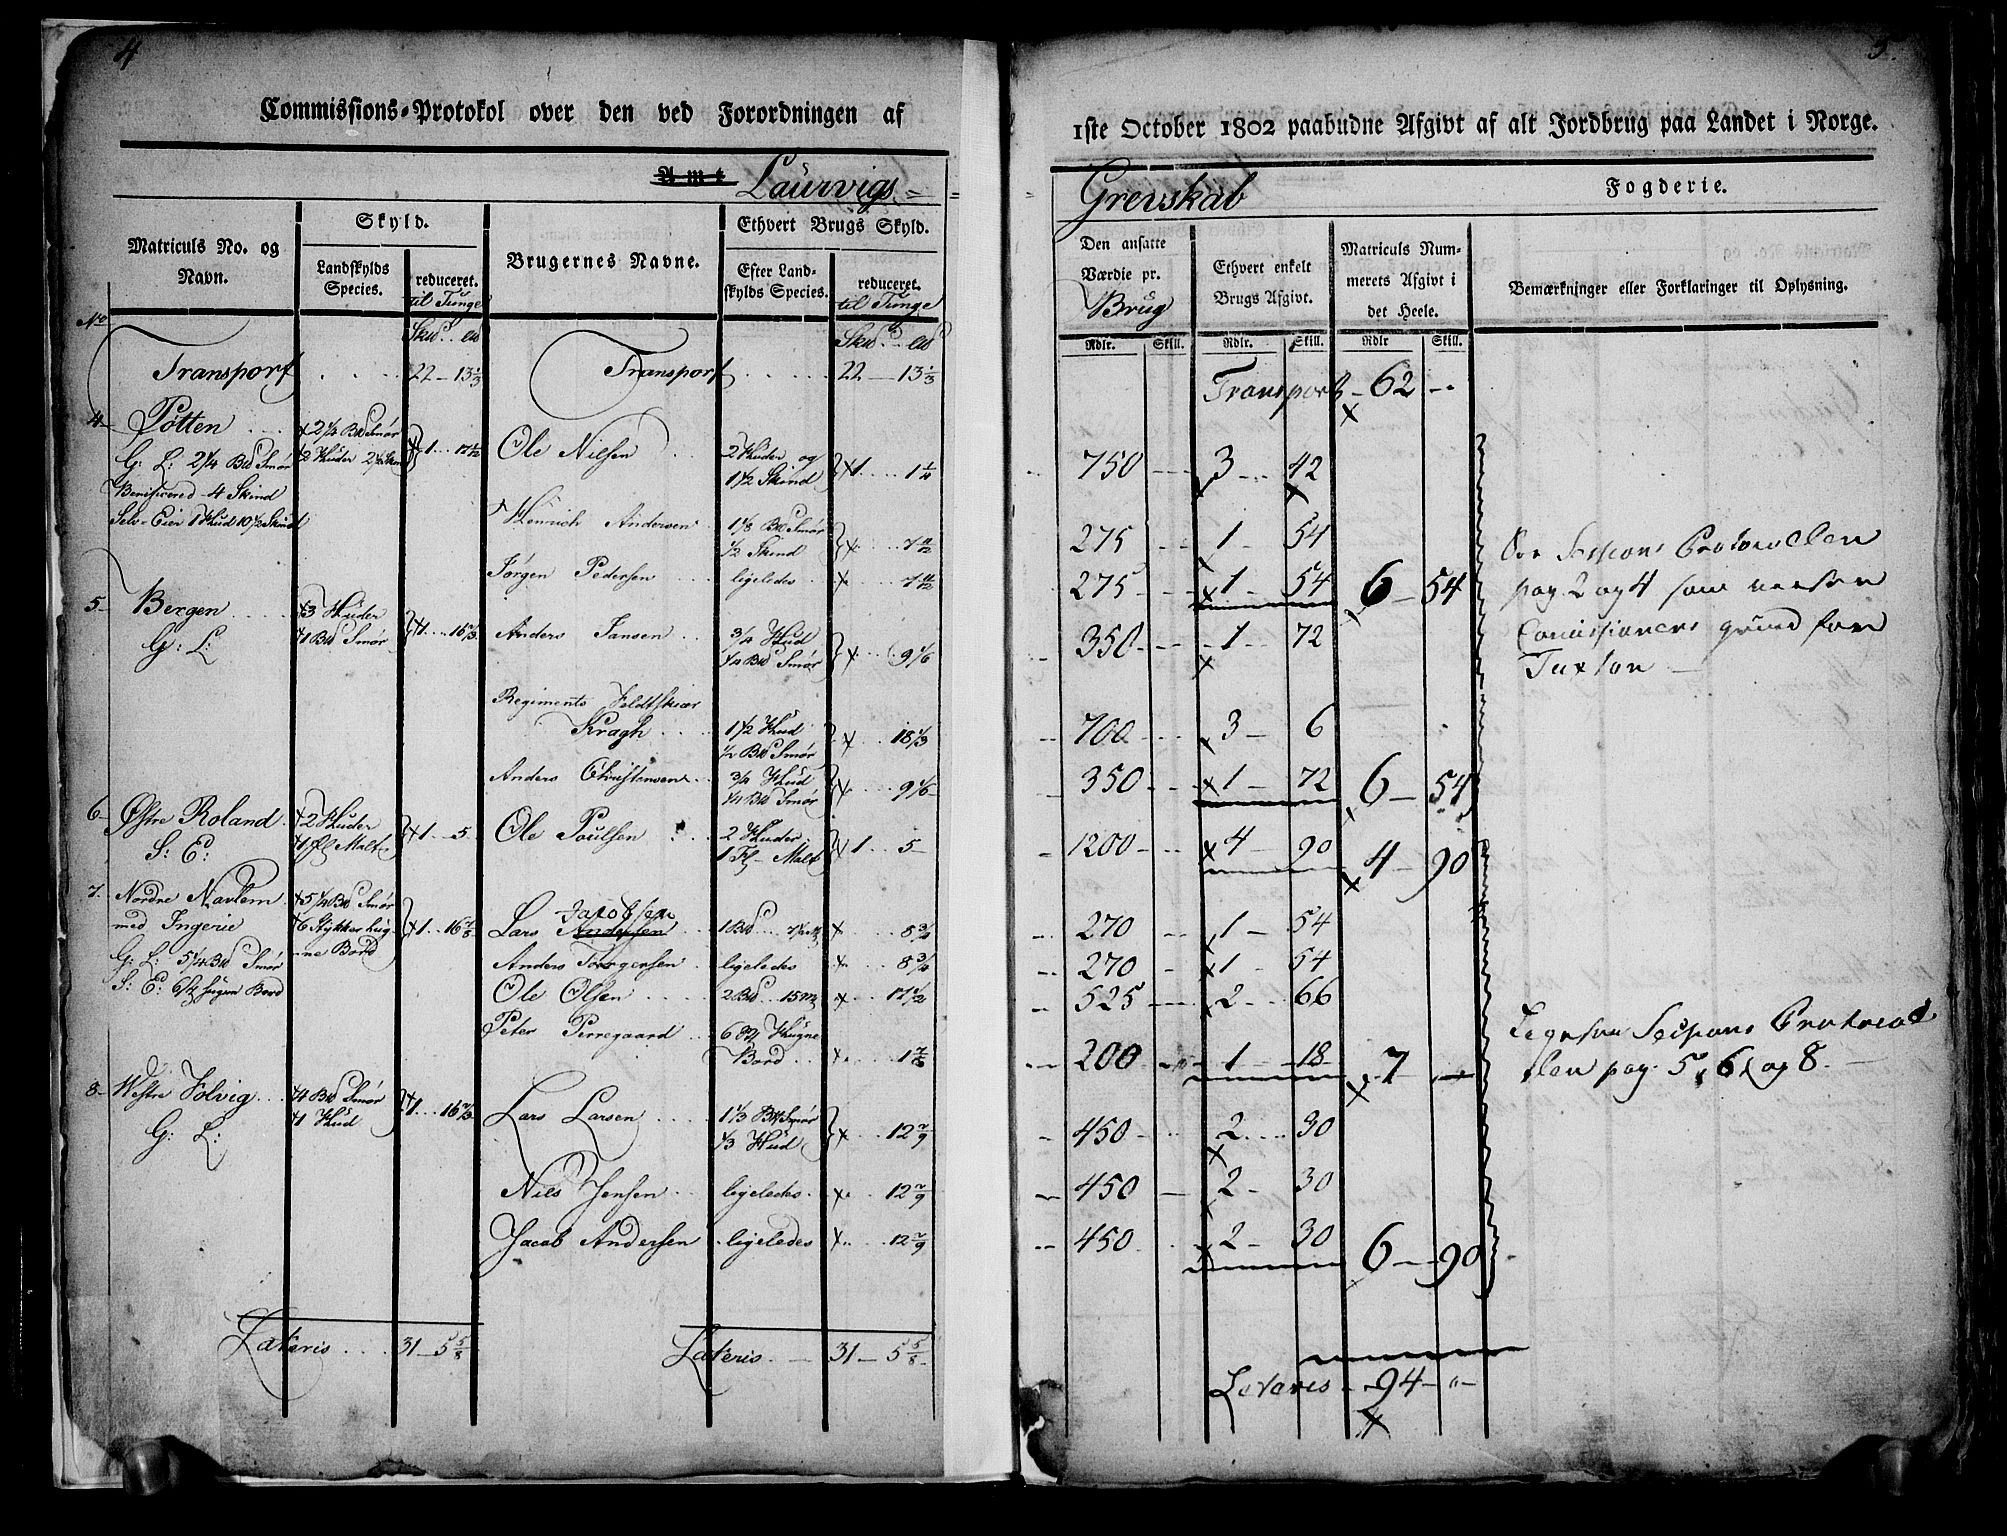 4
Commissions-Protokol over den ved Forordningen af
Amt Laurvigs
Matriculs No. og Navn.
Skyld.
Landskylds Species.
reduceret. til Tunge
Brugernes Navne.
Ethvert Brugs Skyld.
Efter Landskylds Species.
reduceret. til Tunge
No
Transport . . . . 22 - 13 1/3 Transport . . . . 22 - 13 1/3
4 Pøtten . . 2 1/4 Bd Smør
G: L: 2 1/4 Bd Smør
Benificered 4 Skind
Selv-Eier 1 Hud 10 1/2 Skind
Ole Nilsen . . 2 Huder og 1 1/2 Skind 1 . . . 1 1/4
Henrich Andersen 1 1/8 Bd Smør 1/2 Skind
Jørgen Pedersen . . ligeledes
5 Bergen . . . 3 Huder 1 Bd Smør 1 . . 16 2/3
G: L:
Anders Jansen . . 3/4 Hud 1/4 Bd Smør . . . 9 1/6
Regiments Feldtskiær
Kragh . . . 1 1/2 Hud 1/2 Bd Smør . . . 18 1/3
Anders Christensen . . 3/4 Hud 1/4 Bd Smør . . 9 1/6
6 Østre Roland . 2 Huder 1 fl Malt 1 . . 5
S: E:
Ole Poulsen . 2 Huder 1 Fl Malt 1 . . 5
7 Nordre Navlem 5 1/4 Bd Smør
med Ingerie 6 Stykker hugne Bord 1 . . 16
G: L: 5 1/4 Bd Smør
S: E: 6 hugen Bord
Jacobsen
Lars Andersen 1 Bd . . . 8 3/4
Anders Torgersen . ligeledes . . 8 3/4
Ole Olsen . . . . 2 Bd . . 15 . . 17 1/2
Peter Perregaard . . 6 Hugne Bord . . . 1 7/8
8 Westre Holvig . . 4 Bd Smør 1 Hud 1 . . 16 2/3
G: L:
Lars Larsen . . . . 1 1/3 Bd Smør 1/3 Hud . . 12 2/9
Nils Jensen . . ligeledes . . . 12 2/9
Jacob Andersen . ligeledes . . . 12 2/9
Lateris . . . 31 - 5 5/8 Lateris . - 31 - 5 5/8
5
1ste October 1802 paabudne Afgivt af alt Jordbrug paa Landet i Norge.
Grevskab Fogderie.
Den ansatte Værdie pr. Brug
Ethvert enkelt Brugs Afgivt.
Matriculs Nummerets Afgivt i det Heele.
Bemærkninger eller Forklaringer til Oplysning.
Rdlr. Skill. Rdlr. Skill. Rdlr Skill.
Transport - 62 -
750 - 3 - 42
275 - 1 - 54
275 - 1 - 54 6 - 54
350 - 1 - 72
700 - 3 - 6
350 - 1 - 72 6 - 54
1200 - 4 - 90 4 - 90
270 - 1 - 54
270 - 1 - 54
525 - 2 - 66
200 - 1 - 18 7 -
450 - 2 - 30
450 - 2 - 30
450 - 2 - 30 6 - 90
Sessions Protocollen
pag 2 og 4 som
Comissionens grund for
Taxten
Sessions Protocol
len pag. 5, 6, og 8.
Lateris - 94 - "-